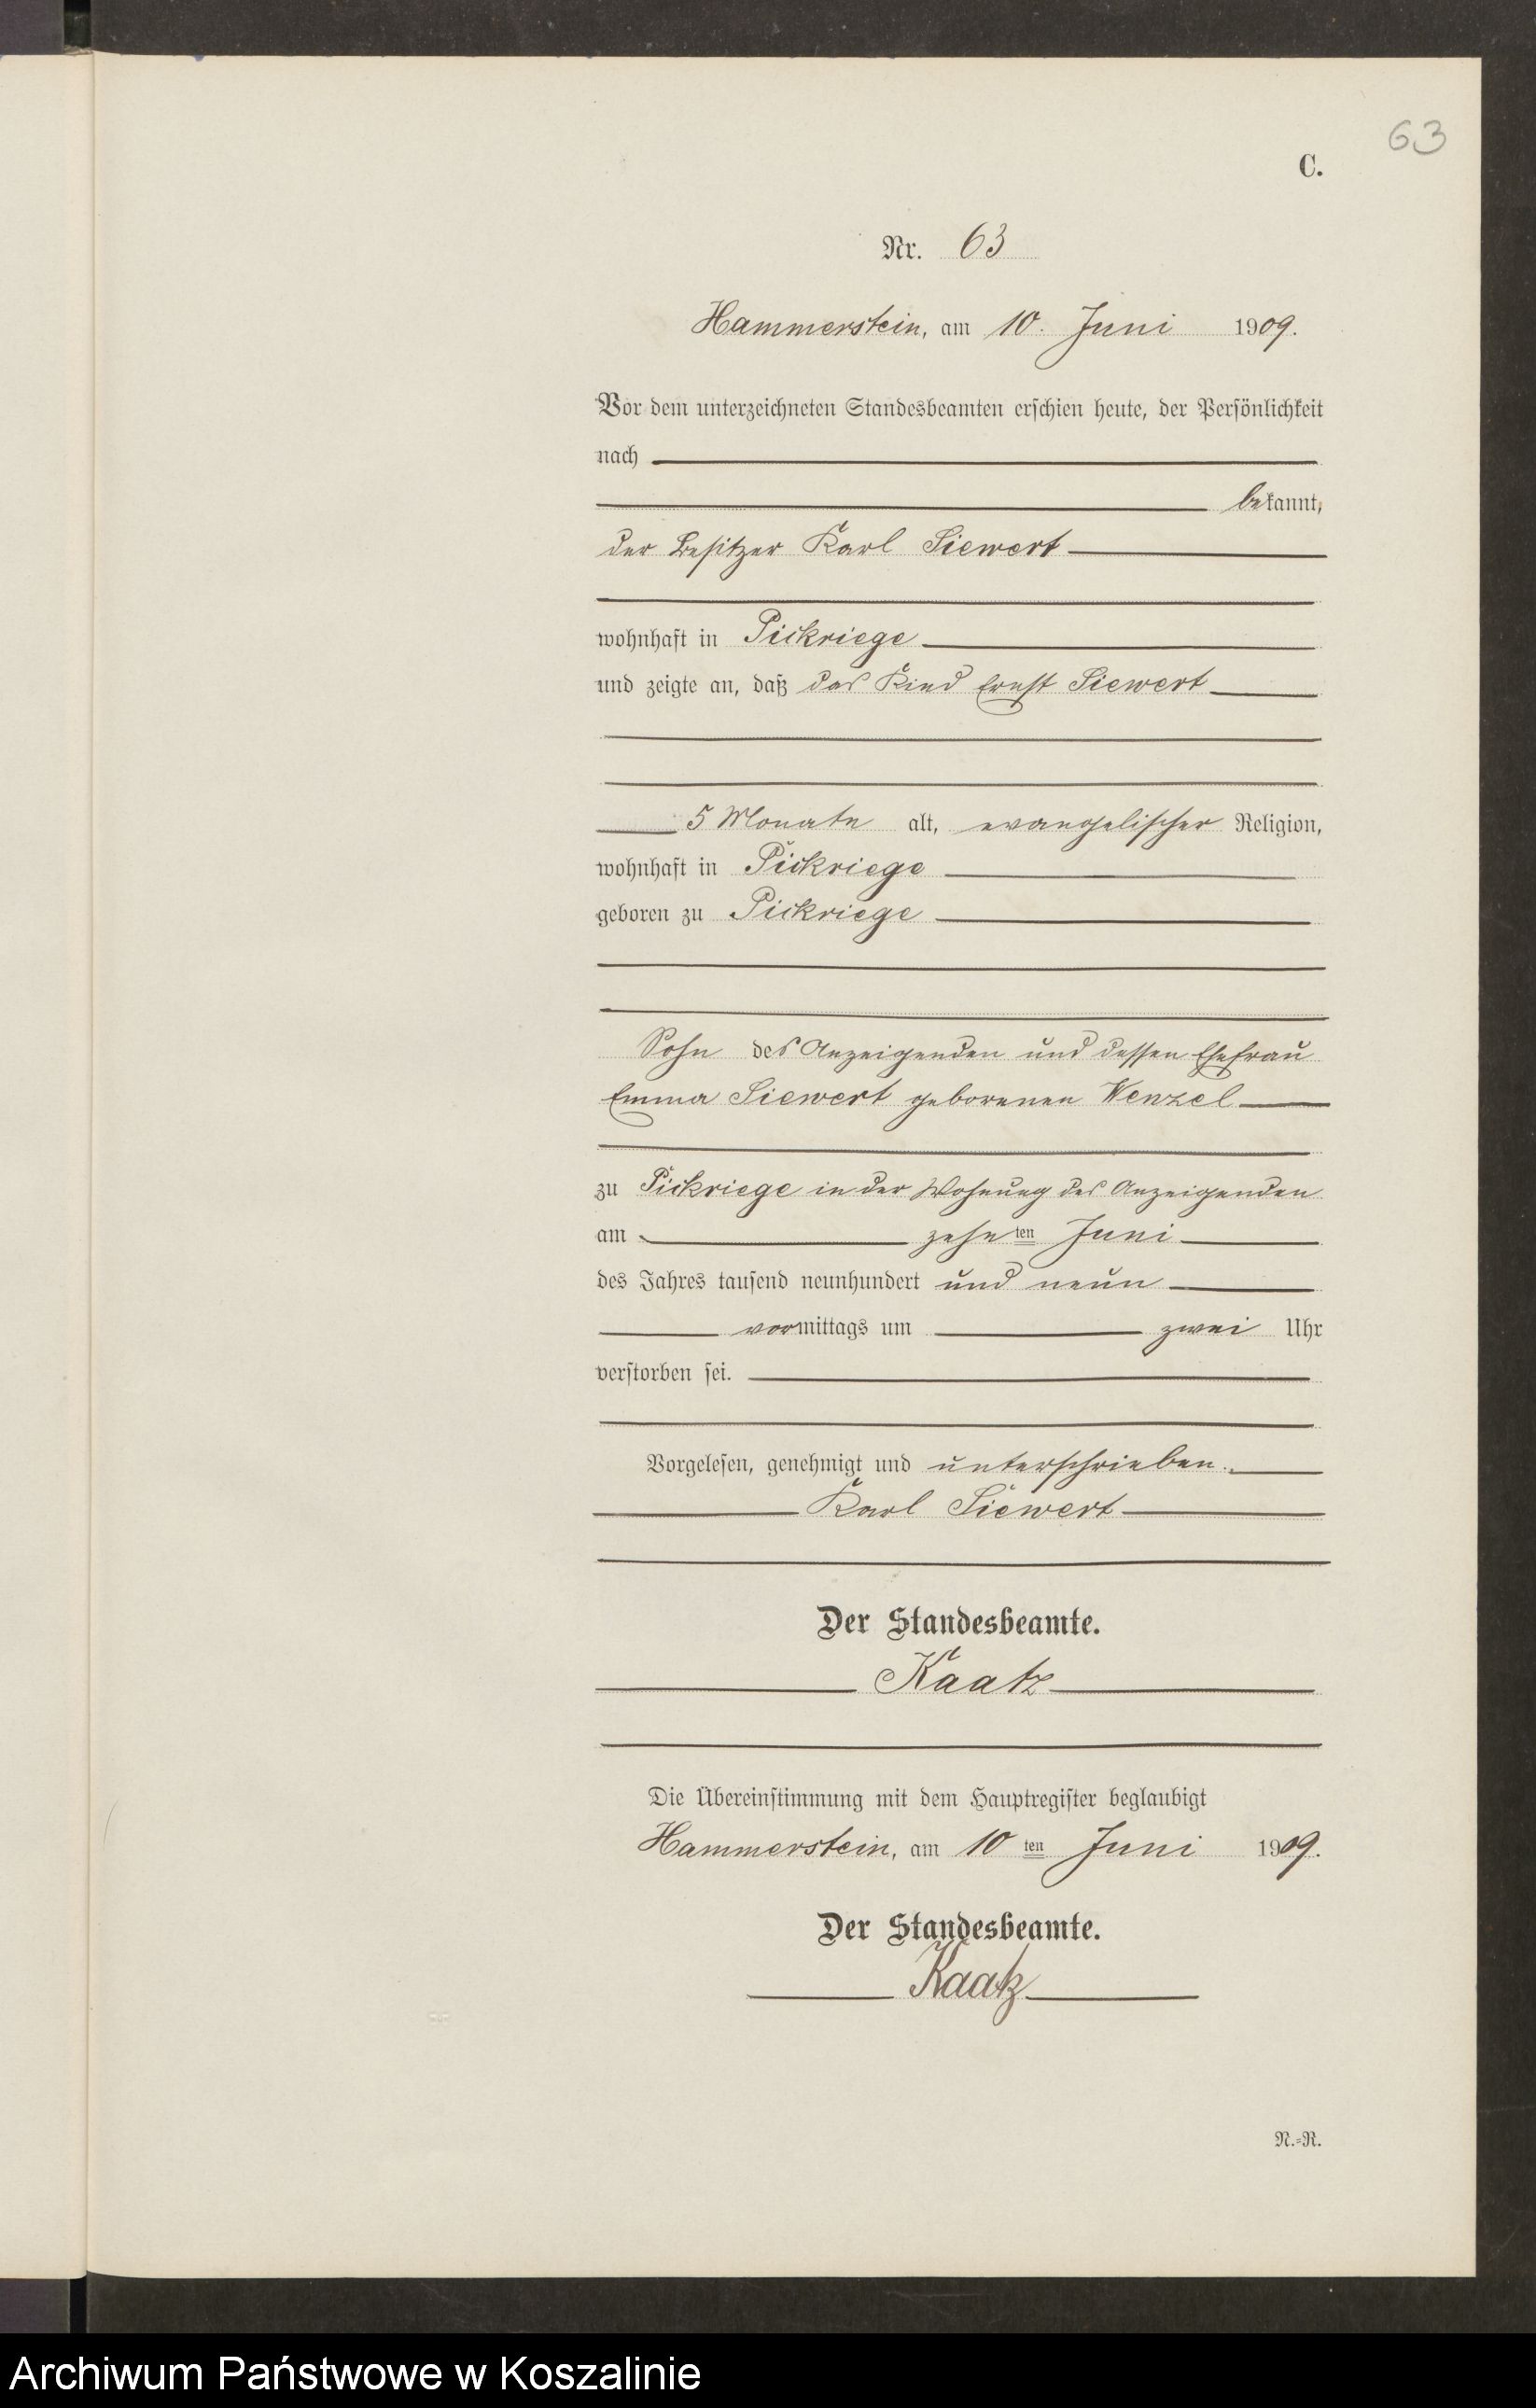 63
C.
Nr. 63
Hammerstein, am 10. Juni 1909.
Vor dem unterzeichneten Standesbeamten erschien heute, der Persönlichkeit
nach
bekannt,
der Besitzer Karl Siewert
wohnhaft in Pickriege
und zeigte an, daß das Kind Ernst Siewert
5 Monate alt, evangelischer Religion,
wohnhaft in Pickriege
geboren zu Pickriege
Sohn des Anzeigenden und dessen Ehefrau
Emma Siewert geborenen Wenzel
zu Pickriege in der Wohnung des Anzeigenden
am zehnten Juni
des Jahres tausend neunhundert und neun
vormittags um zwei Uhr
verstorben sei.
Vorgelesen, genehmigt und unterschrieben.
Karl Siewert
Der Standesbeamte.
Kaatz
Die Übereinstimmung mit dem Hauptregister beglaubigt
Hammerstein, am 10 ten Juni 1909.
Der Standesbeamte.
Kaatz
N.=R.
Archiwum Państwowe w Koszalinie